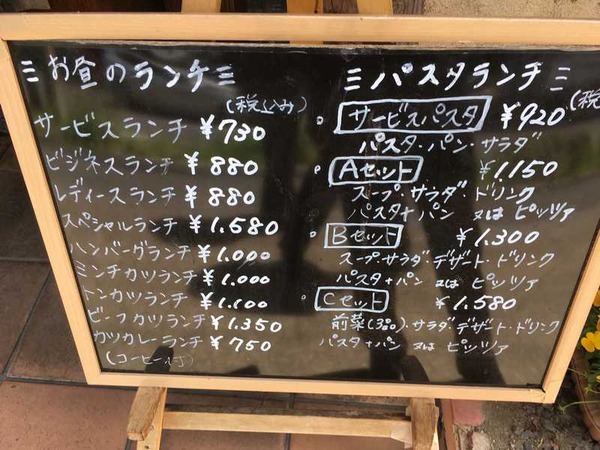 お昼のランチ
(税込み)
サービスランチ ¥730
ビジネスランチ ¥880
レディースランチ ¥880
スペシャルランチ ¥1.580
ハンバーグランチ ¥1.000
ミンチカツランチ ¥1.000
トンカツランチ ¥1.100
ビーフカツランチ ¥1.350
カツカレーランチ ¥750
パスタランチ
(税
サービスパスタ ¥920
パスタ・パン・サラダ
Aセット ¥1.150
スープ・サラダ・ドリンク
パスタ+パン 又は ピッツァ
Bセット ¥1.300
スープ・サラダ・デザート・ドリンク
パスタ+パン 又は ピッツァ
Cセット ¥1.580
前菜(3品)・サラダ・デザート・ドリンク
パスタ+パン 又は ピッツァ